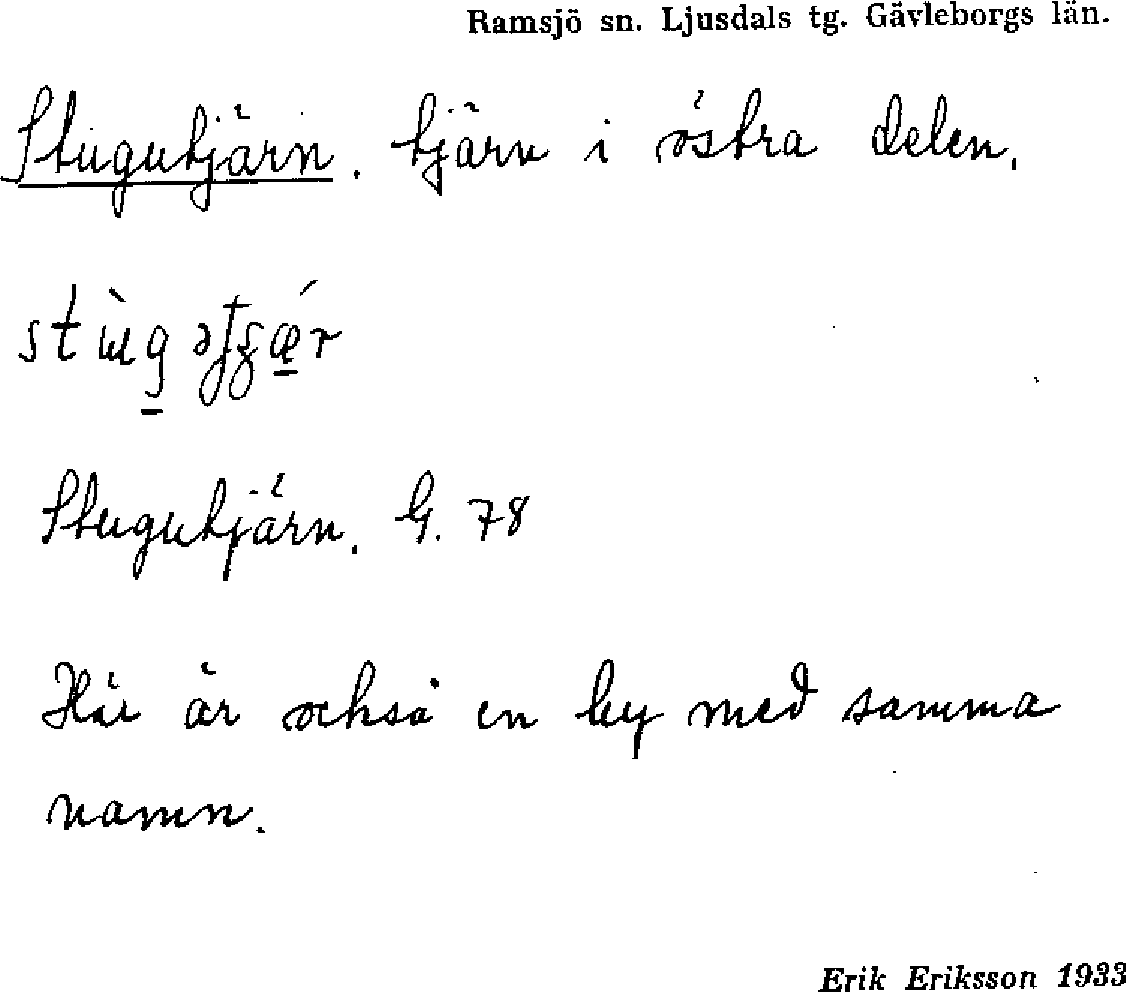 Ramsjö sn. Ljusdals tg. Gävleborgs län.
Stugutjärn. tjärn i östra delen.
Stugutjärn. G. 78
Här är också en by med samma
namn.
Erik Eriksson 1933